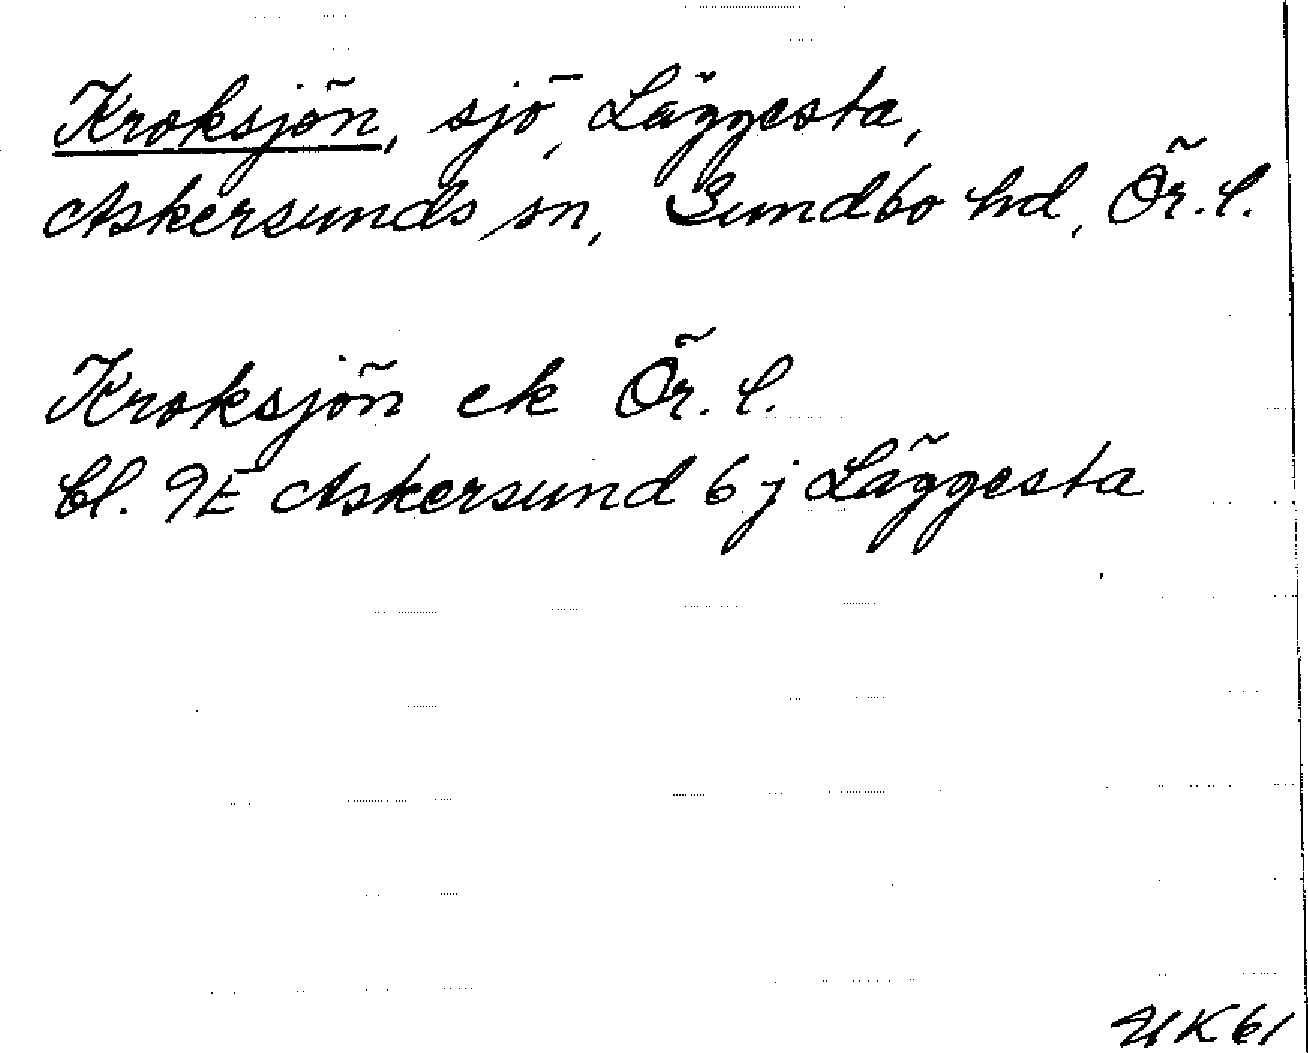 Kroksjön, sjö, Läggesta,
Askersunds sn, Sundbo hd, Ör. l.
Kroksjön ek Ör. l.
bl. 9E Askersund 6 j Läggesta
UK 61